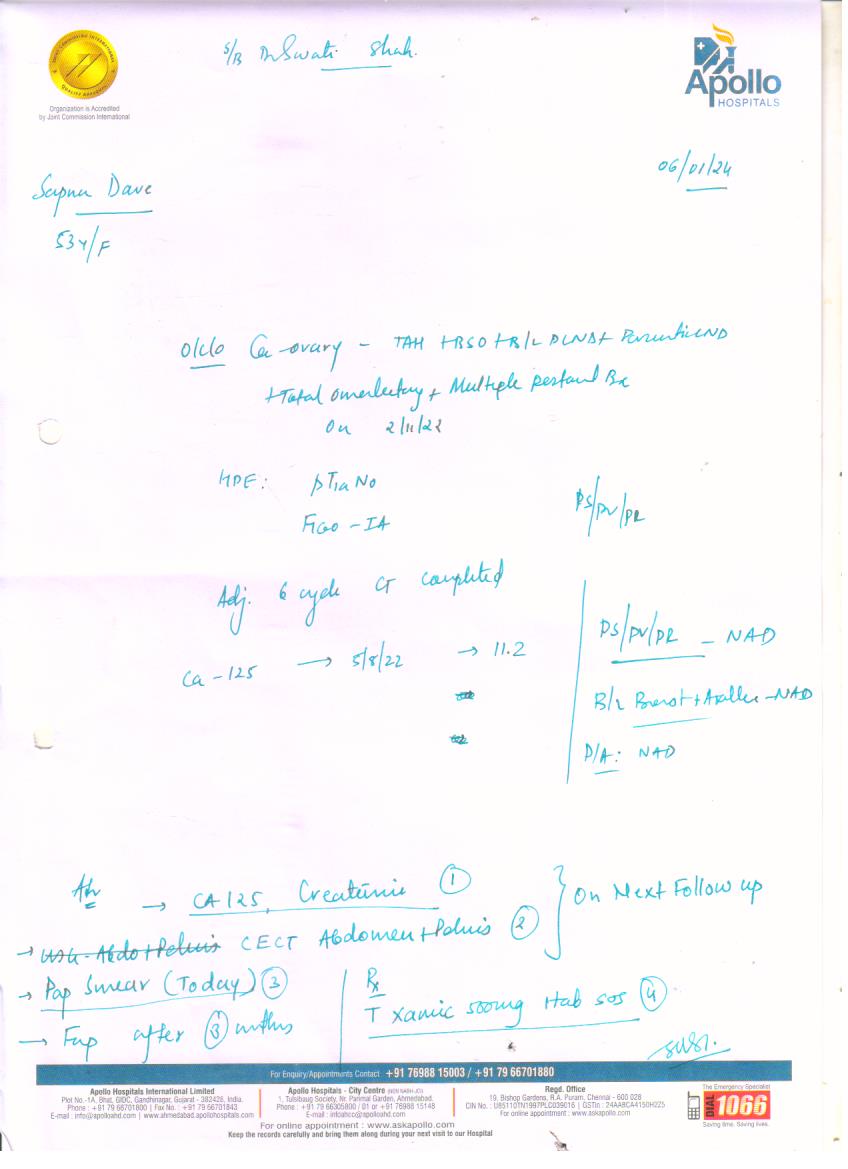 S/B Dr Swati Shah.
JOINT COMMISSION INTERNATIONAL
QUALITY APPROVAL
Organization is Accredited
by Joint Commission International
Apollo
HOSPITALS
06/01/24
Sapna Dave
53 Y/F
O/C/O Ca-ovary - TAH + BSO + B/L PLND +
+ Total omentectomy + Multiple Bx
On 2/11/22
HPE: pT1a N0
FIGO - IA
PS/PV/PR
Adj. 6 cycle CT completed
Ca-125 → 5/8/22 → 11.2
PS/PV/PR - NAD
B/L Breast + Axilla - NAD
P/A: NAD
Adv → CA 125, Creatinine ①
→ USG - Abdo + Pelvis CECT Abdomen + Pelvis ②
} On Next Follow up
→ Pap Smear (Today) ③
→ F/up after ③ mnths
Rx
T Xamic 500mg 1 tab sos ④
For Enquiry/Appointments Contact +91 76988 15003 / +91 79 66701880
Apollo Hospitals International Limited
Plot No.-1A, Bhat, GIDC, Gandhinagar, Gujarat - 382428, India.
Phone : +91 79 66701800 | Fax No. : +91 79 66701843
E-mail : info@apolloahd.com | www.ahmedabad.apollohospitals.com
Apollo Hospitals - City Centre (NON NABH-JCI)
1, Tulsibaug Society, Nr. Parimal Garden, Ahmedabad.
Phone : +91 79 66305800 / 01 or +91 76988 15148
E-mail : infoahcc@apolloahd.com
Regd. Office
19, Bishop Gardens, R.A. Puram, Chennai - 600 028
CIN No. : U85110TN1997PLC039016 | GSTin : 24AABCA4150H2Z5
For online appointment : www.askapollo.com
The Emergency Specialist
DIAL 1066
Saving time. Saving lives.
For online appointment : www.askapollo.com
Keep the records carefully and bring them along during your next visit to our Hospital